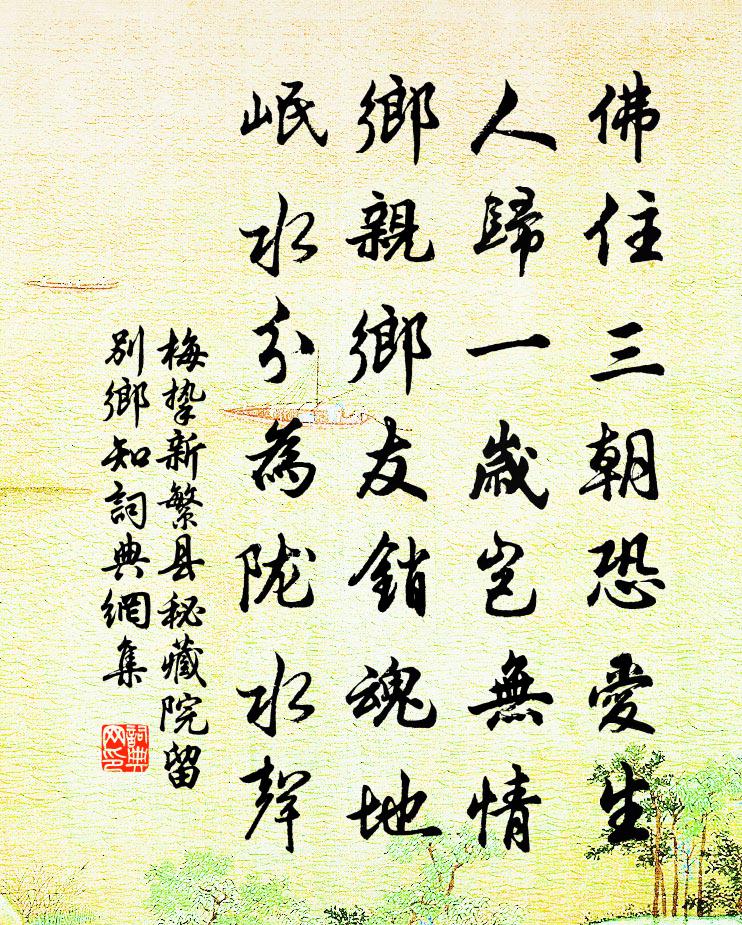 佛住三朝恐愛生
人歸一歲豈無情
鄉親鄉友銷魂地
岷水分為陇水聲
梅挚新繁县秘藏院留
别鄉知詞典網集
詞典网印